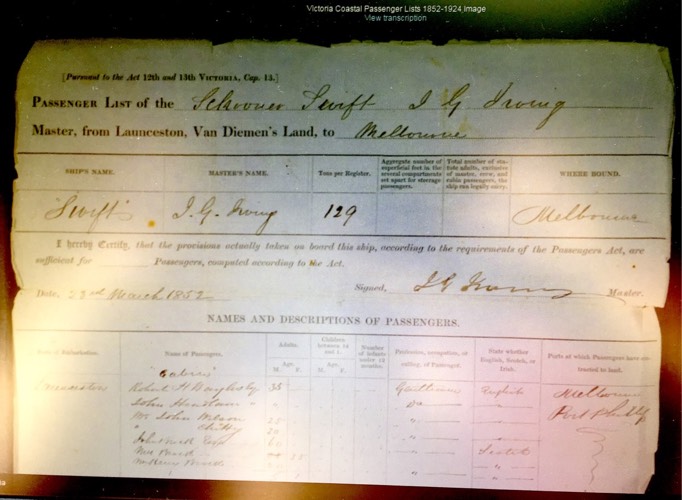 Victoria Coastal Passenger Lists 1852-1924 Image
View transcription
[Pursuant to the Act 12th and 13th VICTORIA, Cap. 13.]
PASSENGER LIST of the Schooner Swift J G Irving
Master, from Launceston, Van Diemen's Land, to Melbourne
SHIP'S NAME. MASTER'S NAME. Tons per Register. Aggregate number of superficial feet in the several compartments set apart for steerage passengers. Total number of statute adults, exclusive of master, crew, and cabin passengers, the ship can legally carry. WHERE BOUND.
"Swift" J. G. Irving 129 Melbourne
I hereby Certify, that the provisions actually taken on board this ship, according to the requirements of the Passengers Act, are
sufficient for Passengers, computed according to the Act.
Date, 23rd March 1852 Signed, J G Irving Master.
NAMES AND DESCRIPTIONS OF PASSENGERS.
Adults. Children between 14 and 1.
Names of Passengers. Age. M. F. Age. M. F. Number of infants under 12 months. Profession, occupation, or calling, of Passenger. State whether English, Scotch, or Irish. Ports at which Passengers have contracted to land.
Launceston Robert H 35 Gentleman English Melbourne
John Do Port Phillip
Mr John Wilson 25
20
John 60
Scotch
35